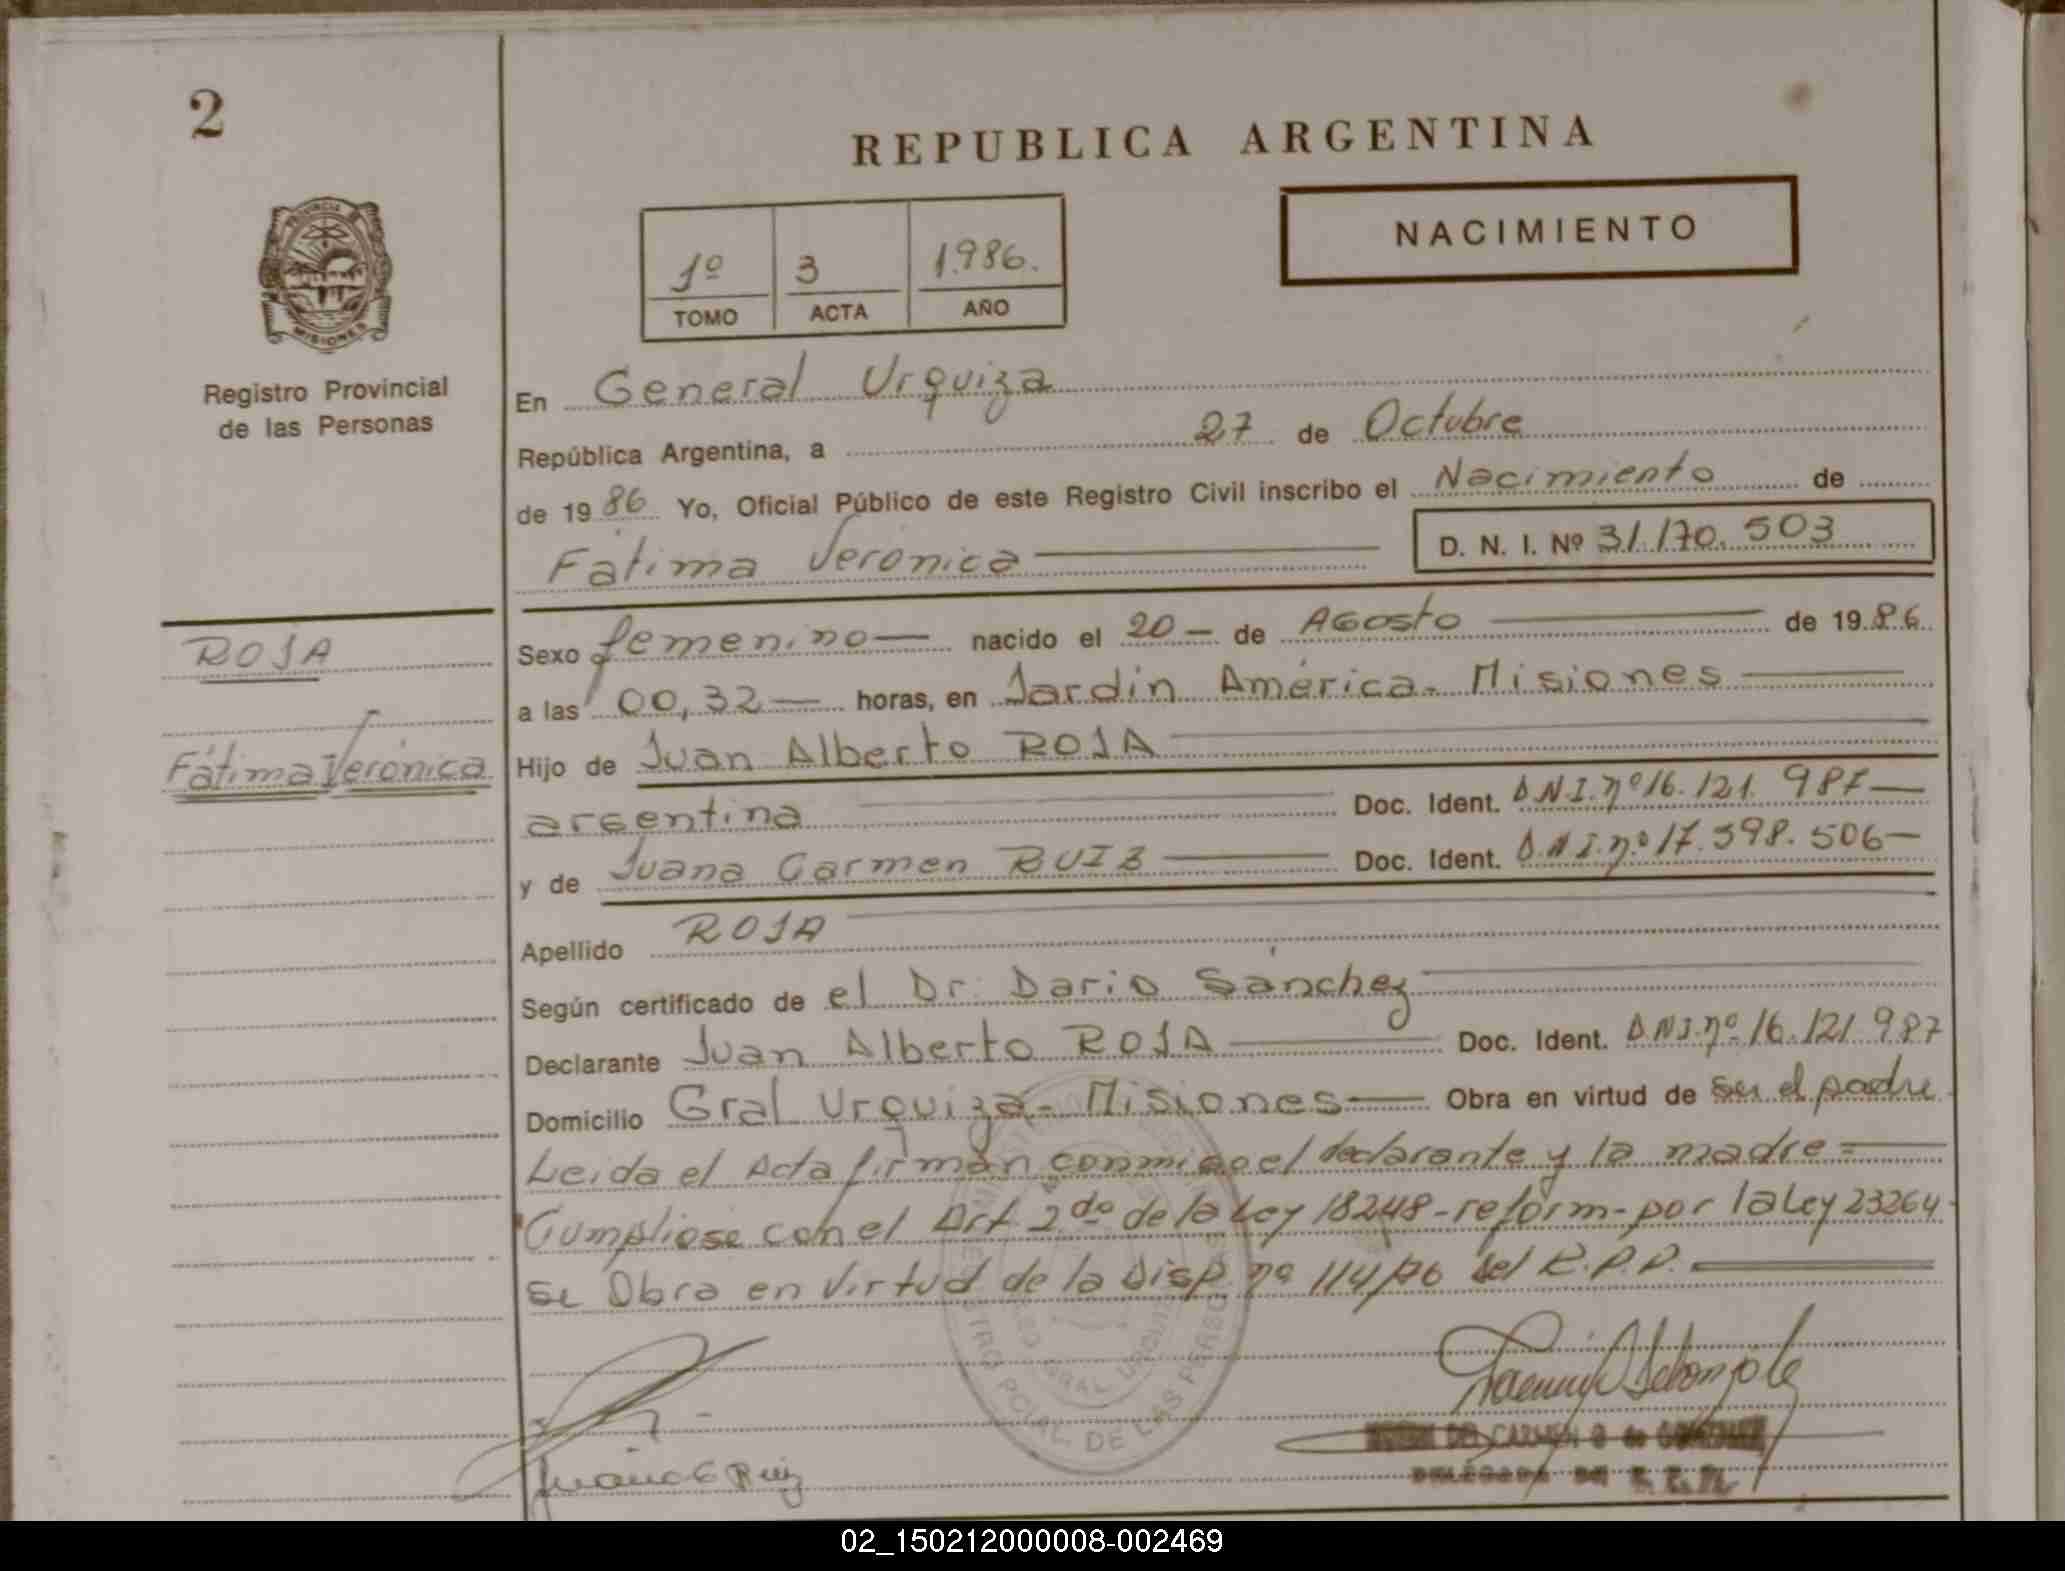 2
REPUBLICA ARGENTINA
NACIMIENTO
1º 3 1.986.
TOMO ACTA AÑO
PROVINCIA DE
MISIONES
Registro Provincial
de las Personas
En General Urquiza
República Argentina, a 27 de Octubre
de 1986 Yo, Oficial Público de este Registro Civil inscribo el Nacimiento de
Fátima Verónica D. N. I. Nº 31.170.503
ROSA
Fátima Verónica
Sexo femenino nacido el 20 de Agosto de 1986
a las 00,32 horas, en Jardín América. Misiones
Hijo de Juan Alberto ROSA
argentina Doc. Ident. D.N.I. nº 16.121.987
y de Juana Carmen RUIZ Doc. Ident. D.N.I. nº 17.398.506
Apellido ROSA
Según certificado de el Dr. Darío Sánchez
Declarante Juan Alberto ROSA Doc. Ident. D.N.I. nº 16.121.987
Domicilio Gral Urquiza - Misiones Obra en virtud de ser el padre
Leida el Acta firman conmigo el declarante y la madre =
Cumpliose con el Art. 2do de la Ley 18248 - reform - por la Ley 23264
se Obra en virtud de la Disp. nº 114/76 del R.P.P.
GRAL URQUIZA
PCIAL. DE LAS PERSONAS
Juana C Ruiz
DEL CARMEN G de GONZALEZ
DELEGADA
02_150212000008-002469